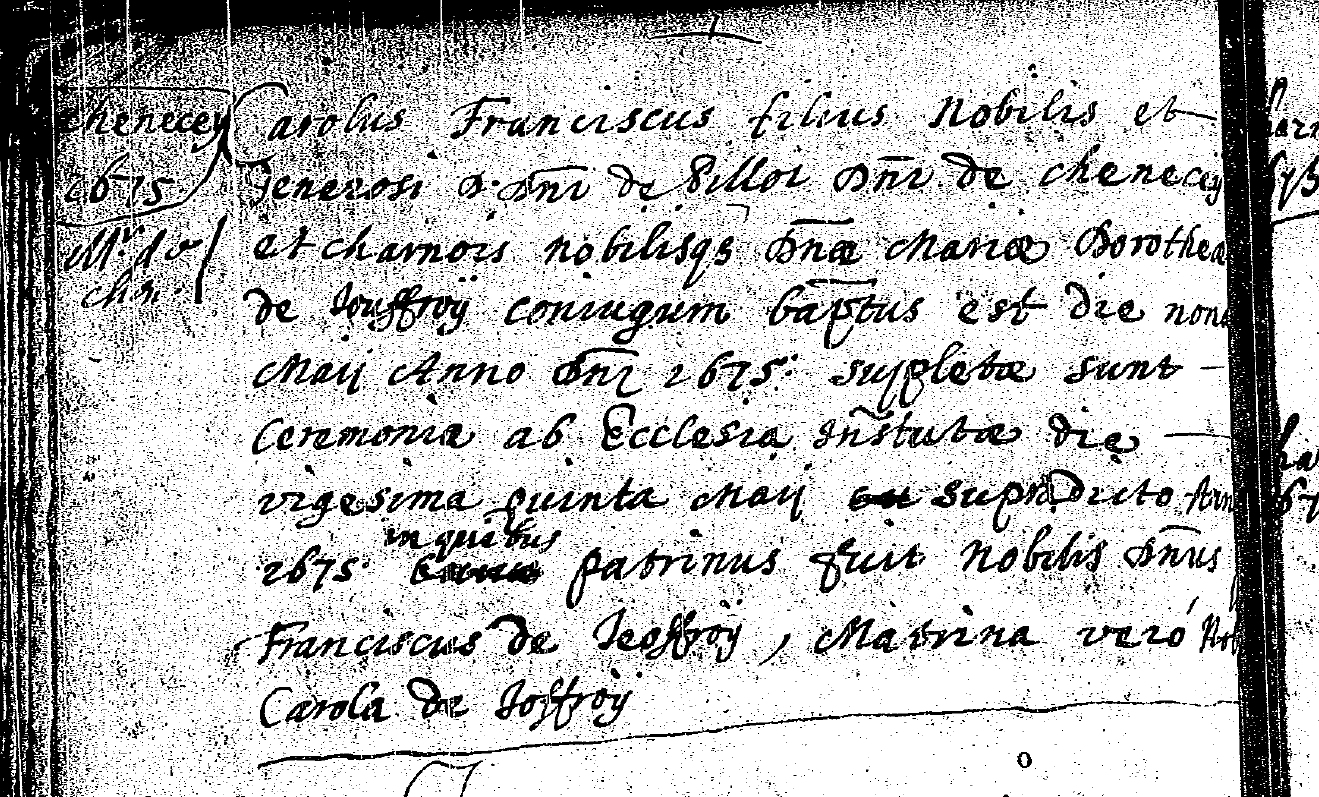 chenecey
1675
Mr. de
chen.
Carolus Franciscus filius Nobilis et
Generosi D. Dni de Sillot Dni de chenecey
et charnois nobilisqs Dnæ Mariæ Dorotheæ
de Jouffroÿ coniugum baptus est die nona
Maij Anno Dni 1675. suppletæ sunt
Ceremoniæ ab Ecclesia Institutæ die
vigesima quinta Maij supradicto Ann
in quibus
1675. patrinus fuit Nobilis Dnus
Franciscus de Jeoffroÿ, Matrina veró Nob
Carola de Joffroÿ